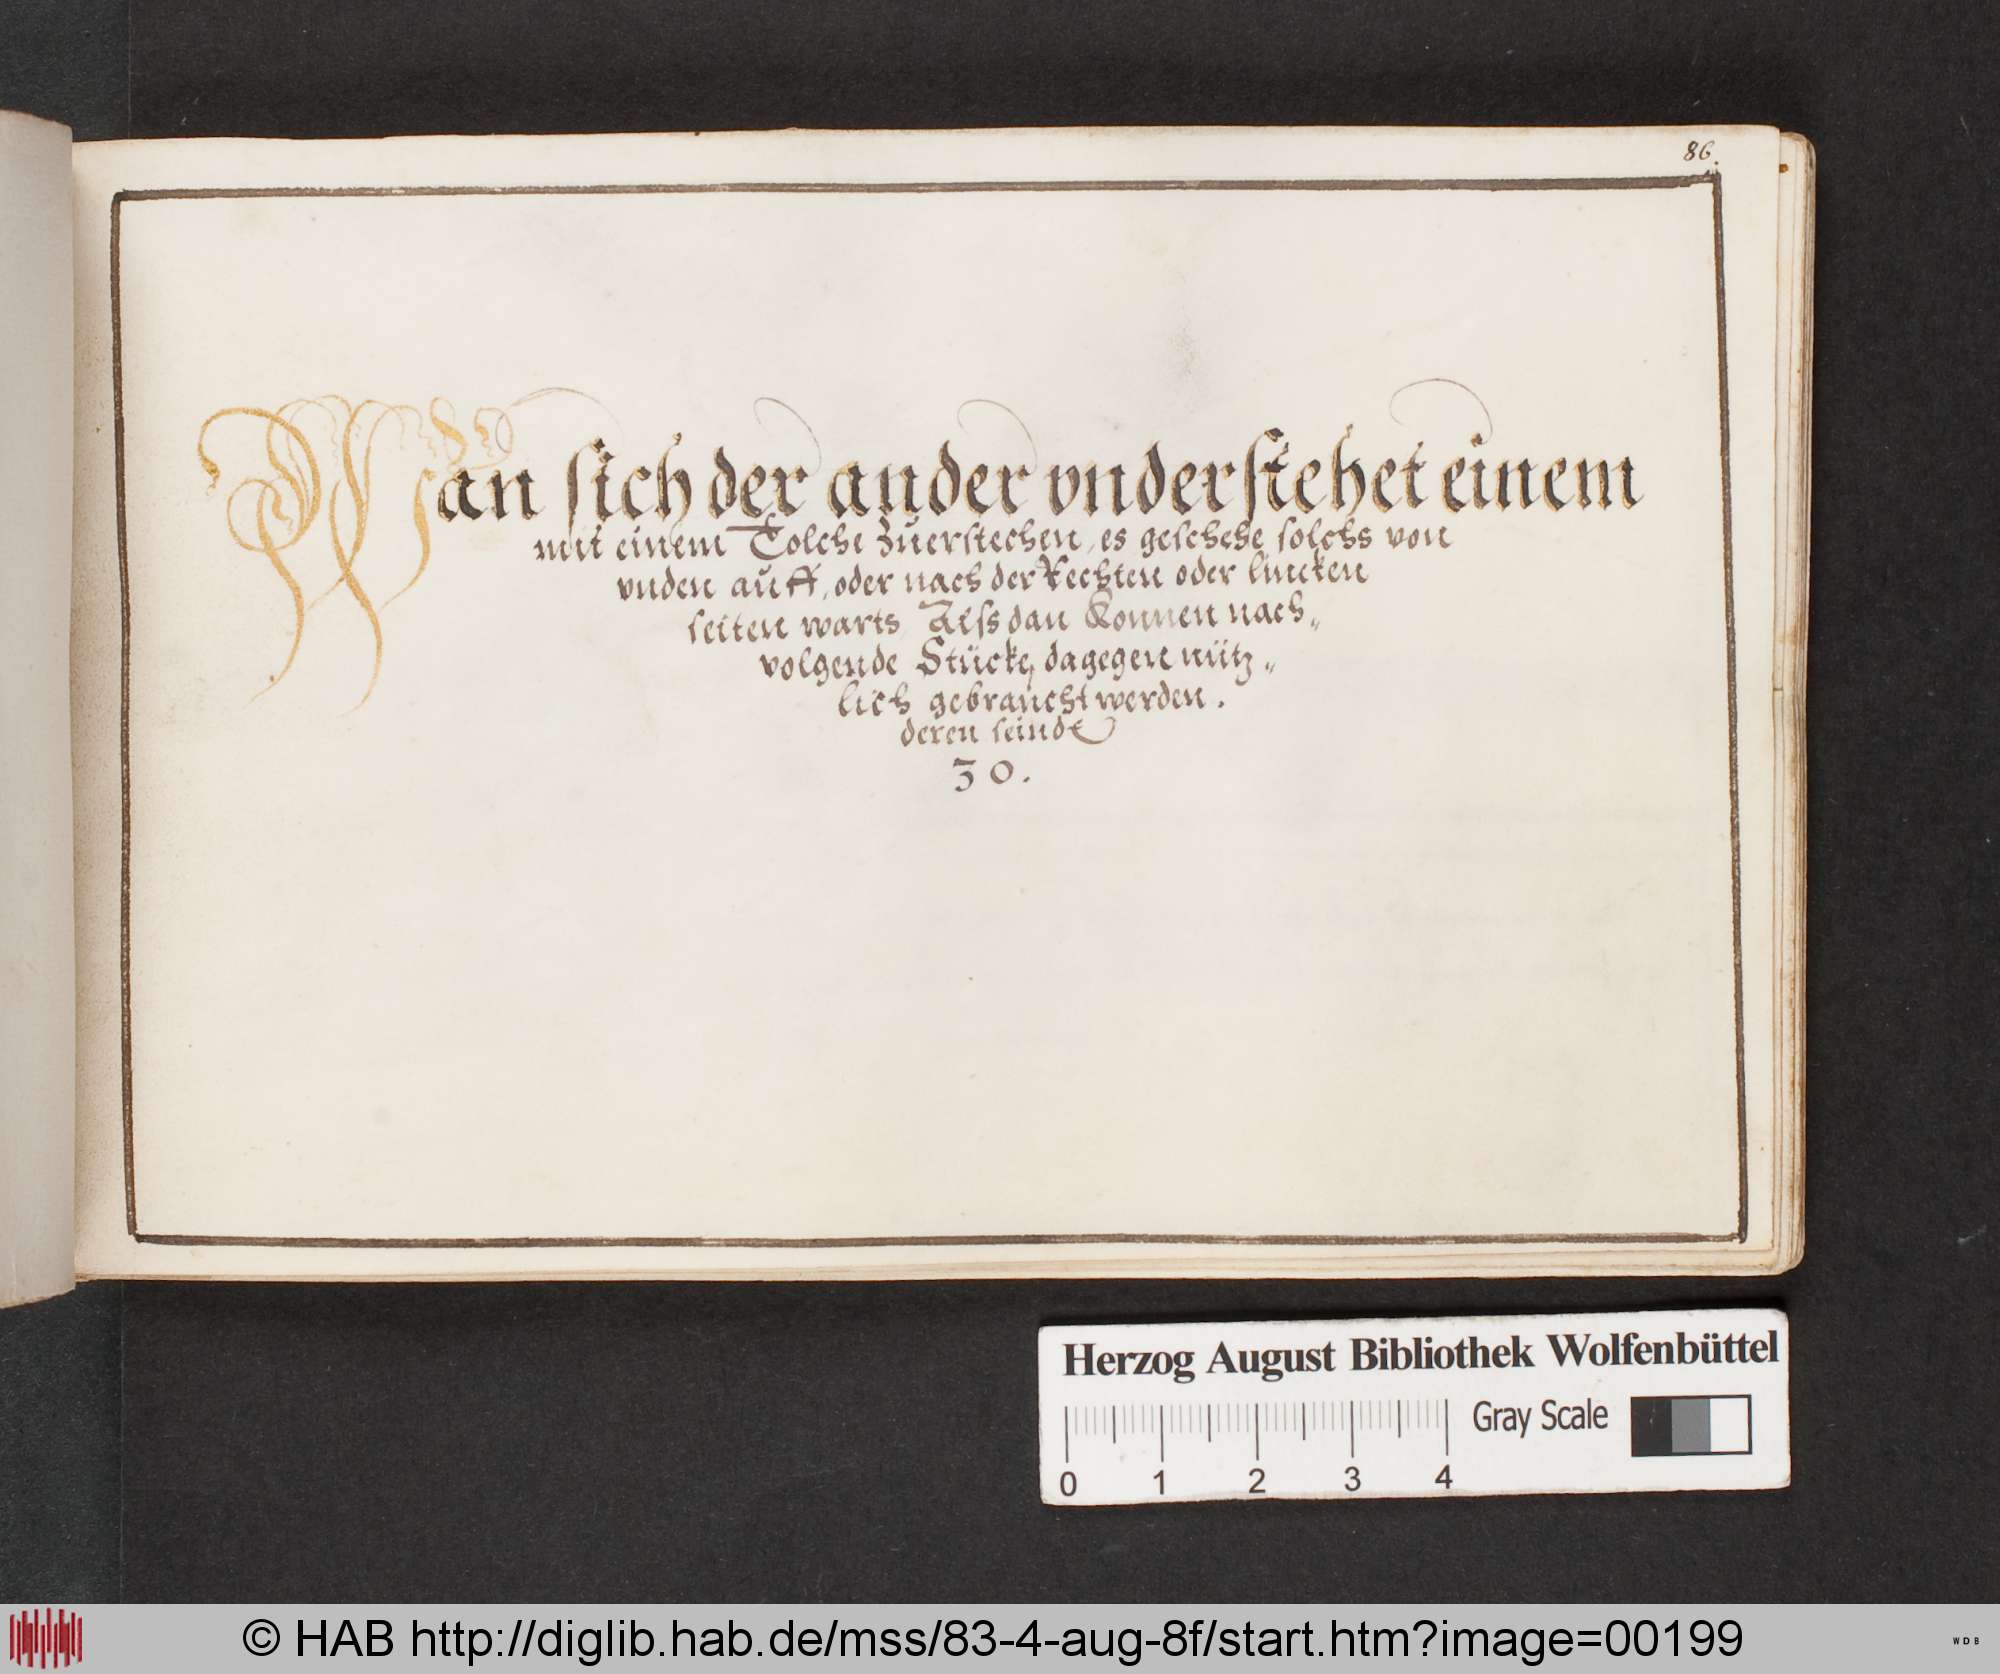 86.
Wan sich der ander vnderstehet einem
mit einem Tolche zuerstechen, es geschehe solchs von
vnden auff, oder nach der Rechten oder lincken
seiten warts, Alss dan Konnen nach„
volgende Stücke, dagegen nütz„
lich gebraucht werden.
deren seindt
30.
Herzog August Bibliothek Wolfenbüttel
Gray Scale
0 1 2 3 4
© HAB http://diglib.hab.de/mss/83-4-aug-8f/start.htm?image=00199
WDB